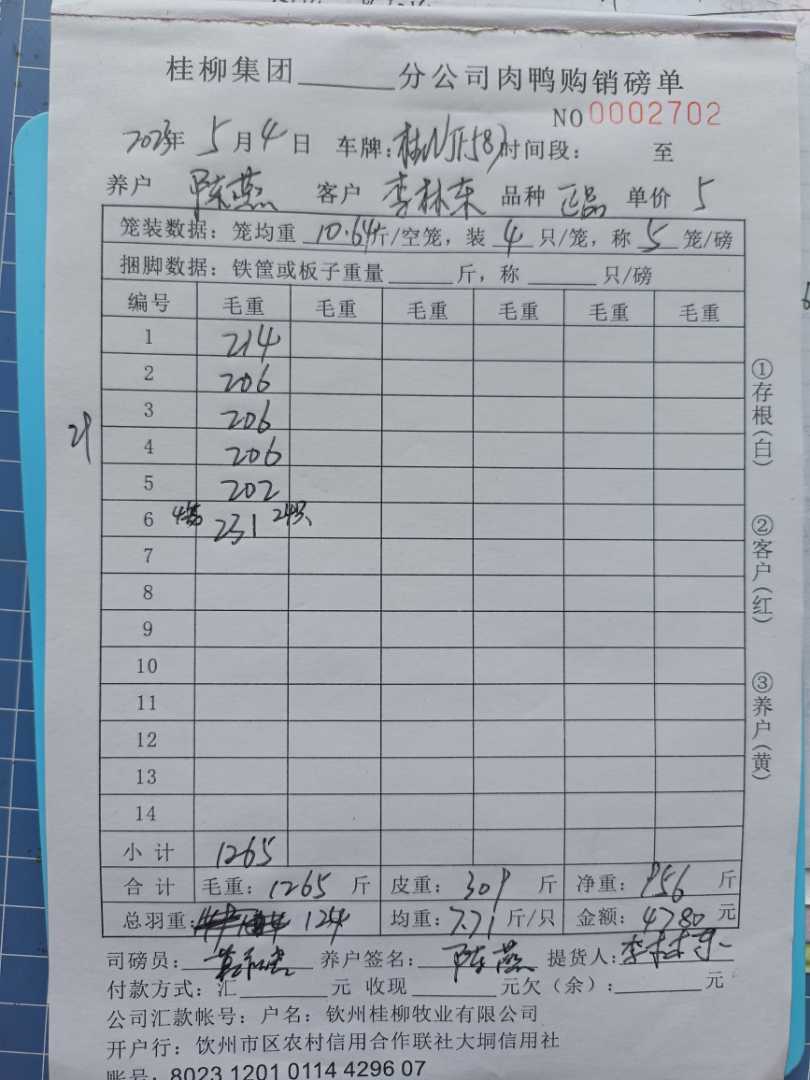 桂柳集团______分公司肉鸭购销磅单
NO 0002702
2023年 5月 4日 车牌: 桂N 时间段: 至
养户 陈燕 客户 李林东 品种 正品 单价 5
笼装数据: 笼均重 10.64斤/空笼, 装 4 只/笼, 称 5 笼/磅
捆脚数据: 铁筐或板子重量______斤, 称______只/磅
编号 毛重 毛重 毛重 毛重 毛重 毛重
1 214
2 206
3 206
4 206
5 202
6 4笼 231 24只
7
8
9
10
11
12
13
14
小计 1265
合计 毛重: 1265 斤 皮重: 309 斤 净重: 956 斤
总羽重: 124 均重: 7.71 斤/只 金额: 4780 元
司磅员: 养户签名: 陈燕 提货人: 李林东
付款方式: 汇______元 收现______元欠(余):______元
公司汇款帐号: 户名: 钦州桂柳牧业有限公司
开户行: 钦州市区农村信用合作联社大垌信用社
账号: 8023 1201 0114 4296 07
①存根(白)
②客户(红)
③养户(黄)